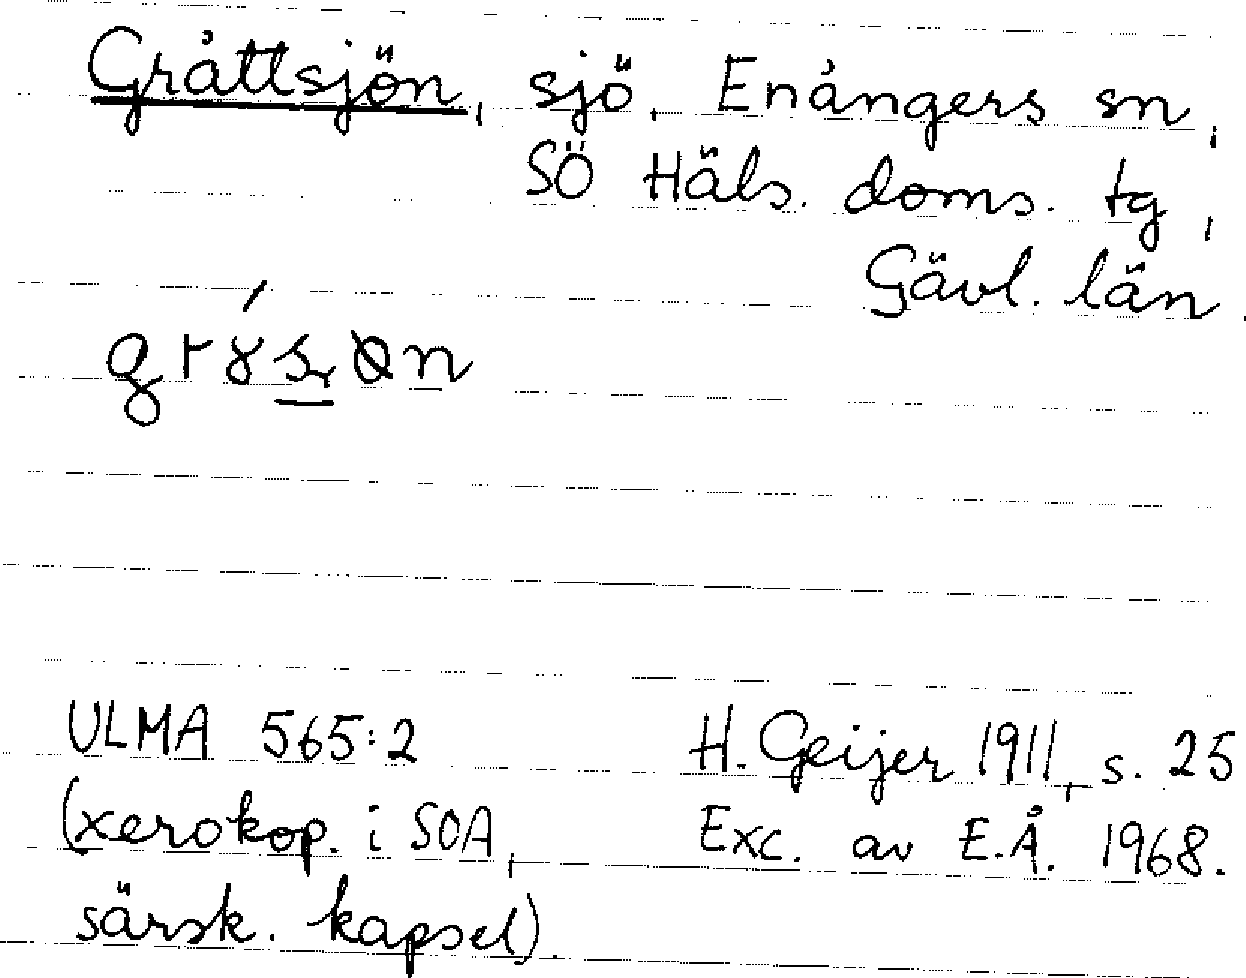 Gråttsjön, sjö, Enångers sn,
SÖ Häls. doms. tg,
Gävl. län.
ULMA 565:2
(xerokop. i SOA,
särsk. kapsel).
H. Geijer 1911, s. 25
Exc. av E.Å. 1968.